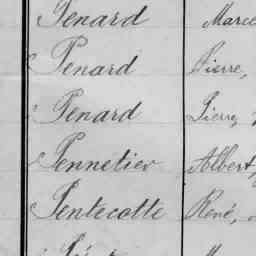 Penard Marce
Penard Pierre,
Penard Pierre,
Pennetier Albert,
Pentecotte René,